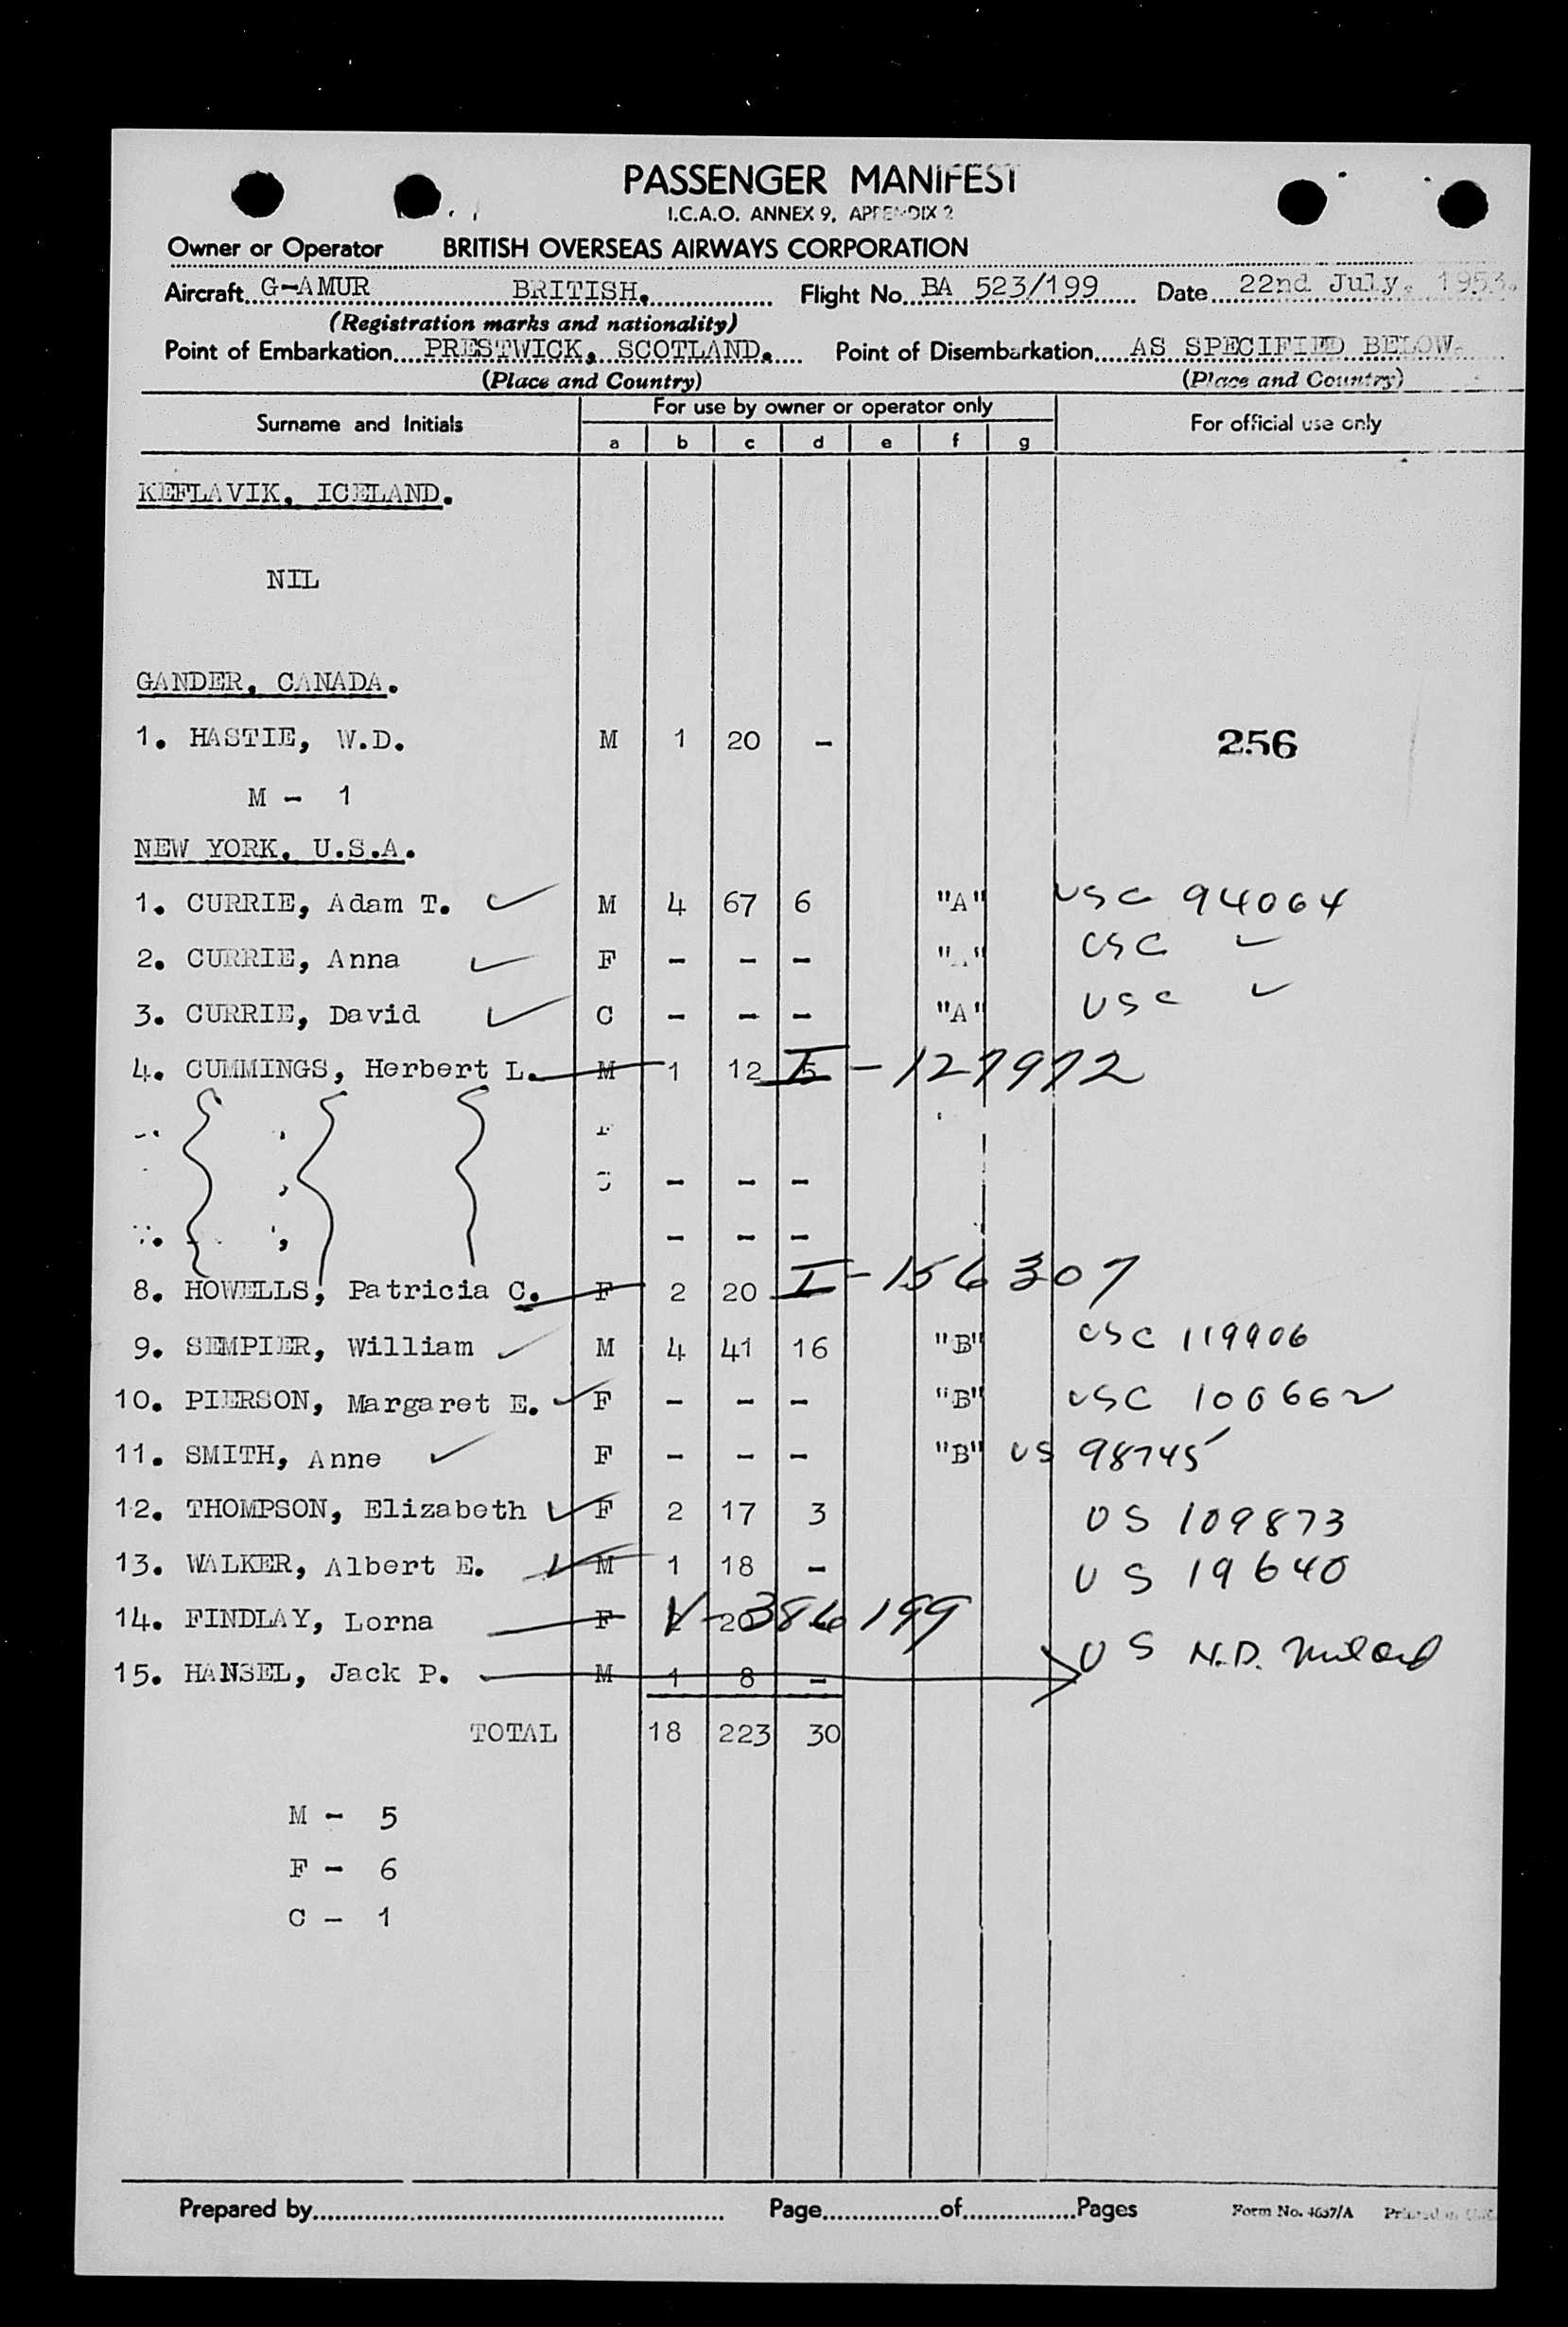 PASSENGER MANIFEST
I.C.A.O. ANNEX 9, APPENDIX 2
Owner or Operator BRITISH OVERSEAS AIRWAYS CORPORATION
Aircraft G-AMUR BRITISH. Flight No. BA 523/199 Date 22nd July, 1953.
(Registration marks and nationality)
Point of Embarkation PRESTWICK, SCOTLAND. Point of Disembarkation AS SPECIFIED BELOW.
(Place and Country) (Place and Country)
Surname and Initials For use by owner or operator only For official use only
a b c d e f g
KEFLAVIK, ICELAND.
NIL
GANDER, CANADA.
1. HASTIE, W.D. M 1 20 - 256
M - 1
NEW YORK, U.S.A.
1. CURRIE, Adam T. ✓ M 4 67 6 "A" USC 94064
2. CURRIE, Anna ✓ F - - - "A" USC ✓
3. CURRIE, David ✓ C - - - "A" USC ✓
4. CUMMINGS, Herbert L. M 1 12 5 I-127972
F
C - - -
- - -
8. HOWELLS, Patricia C. F 2 20 I-156307
9. SEMPIER, William ✓ M 4 41 16 "B" USC 119906
10. PIERSON, Margaret E. ✓ F - - - "B" USC 100662
11. SMITH, Anne ✓ F - - - "B" US 98745
12. THOMPSON, Elizabeth ✓ F 2 17 3 US 109873
13. WALKER, Albert E. ✓ M 1 18 - US 19640
14. FINDLAY, Lorna F 2 20 V-386199
15. HANSEL, Jack P. M 1 8 - US N.D.
TOTAL 18 223 30
M - 5
F - 6
C - 1
Prepared by Page of Pages Form No. 4657/A Printed in